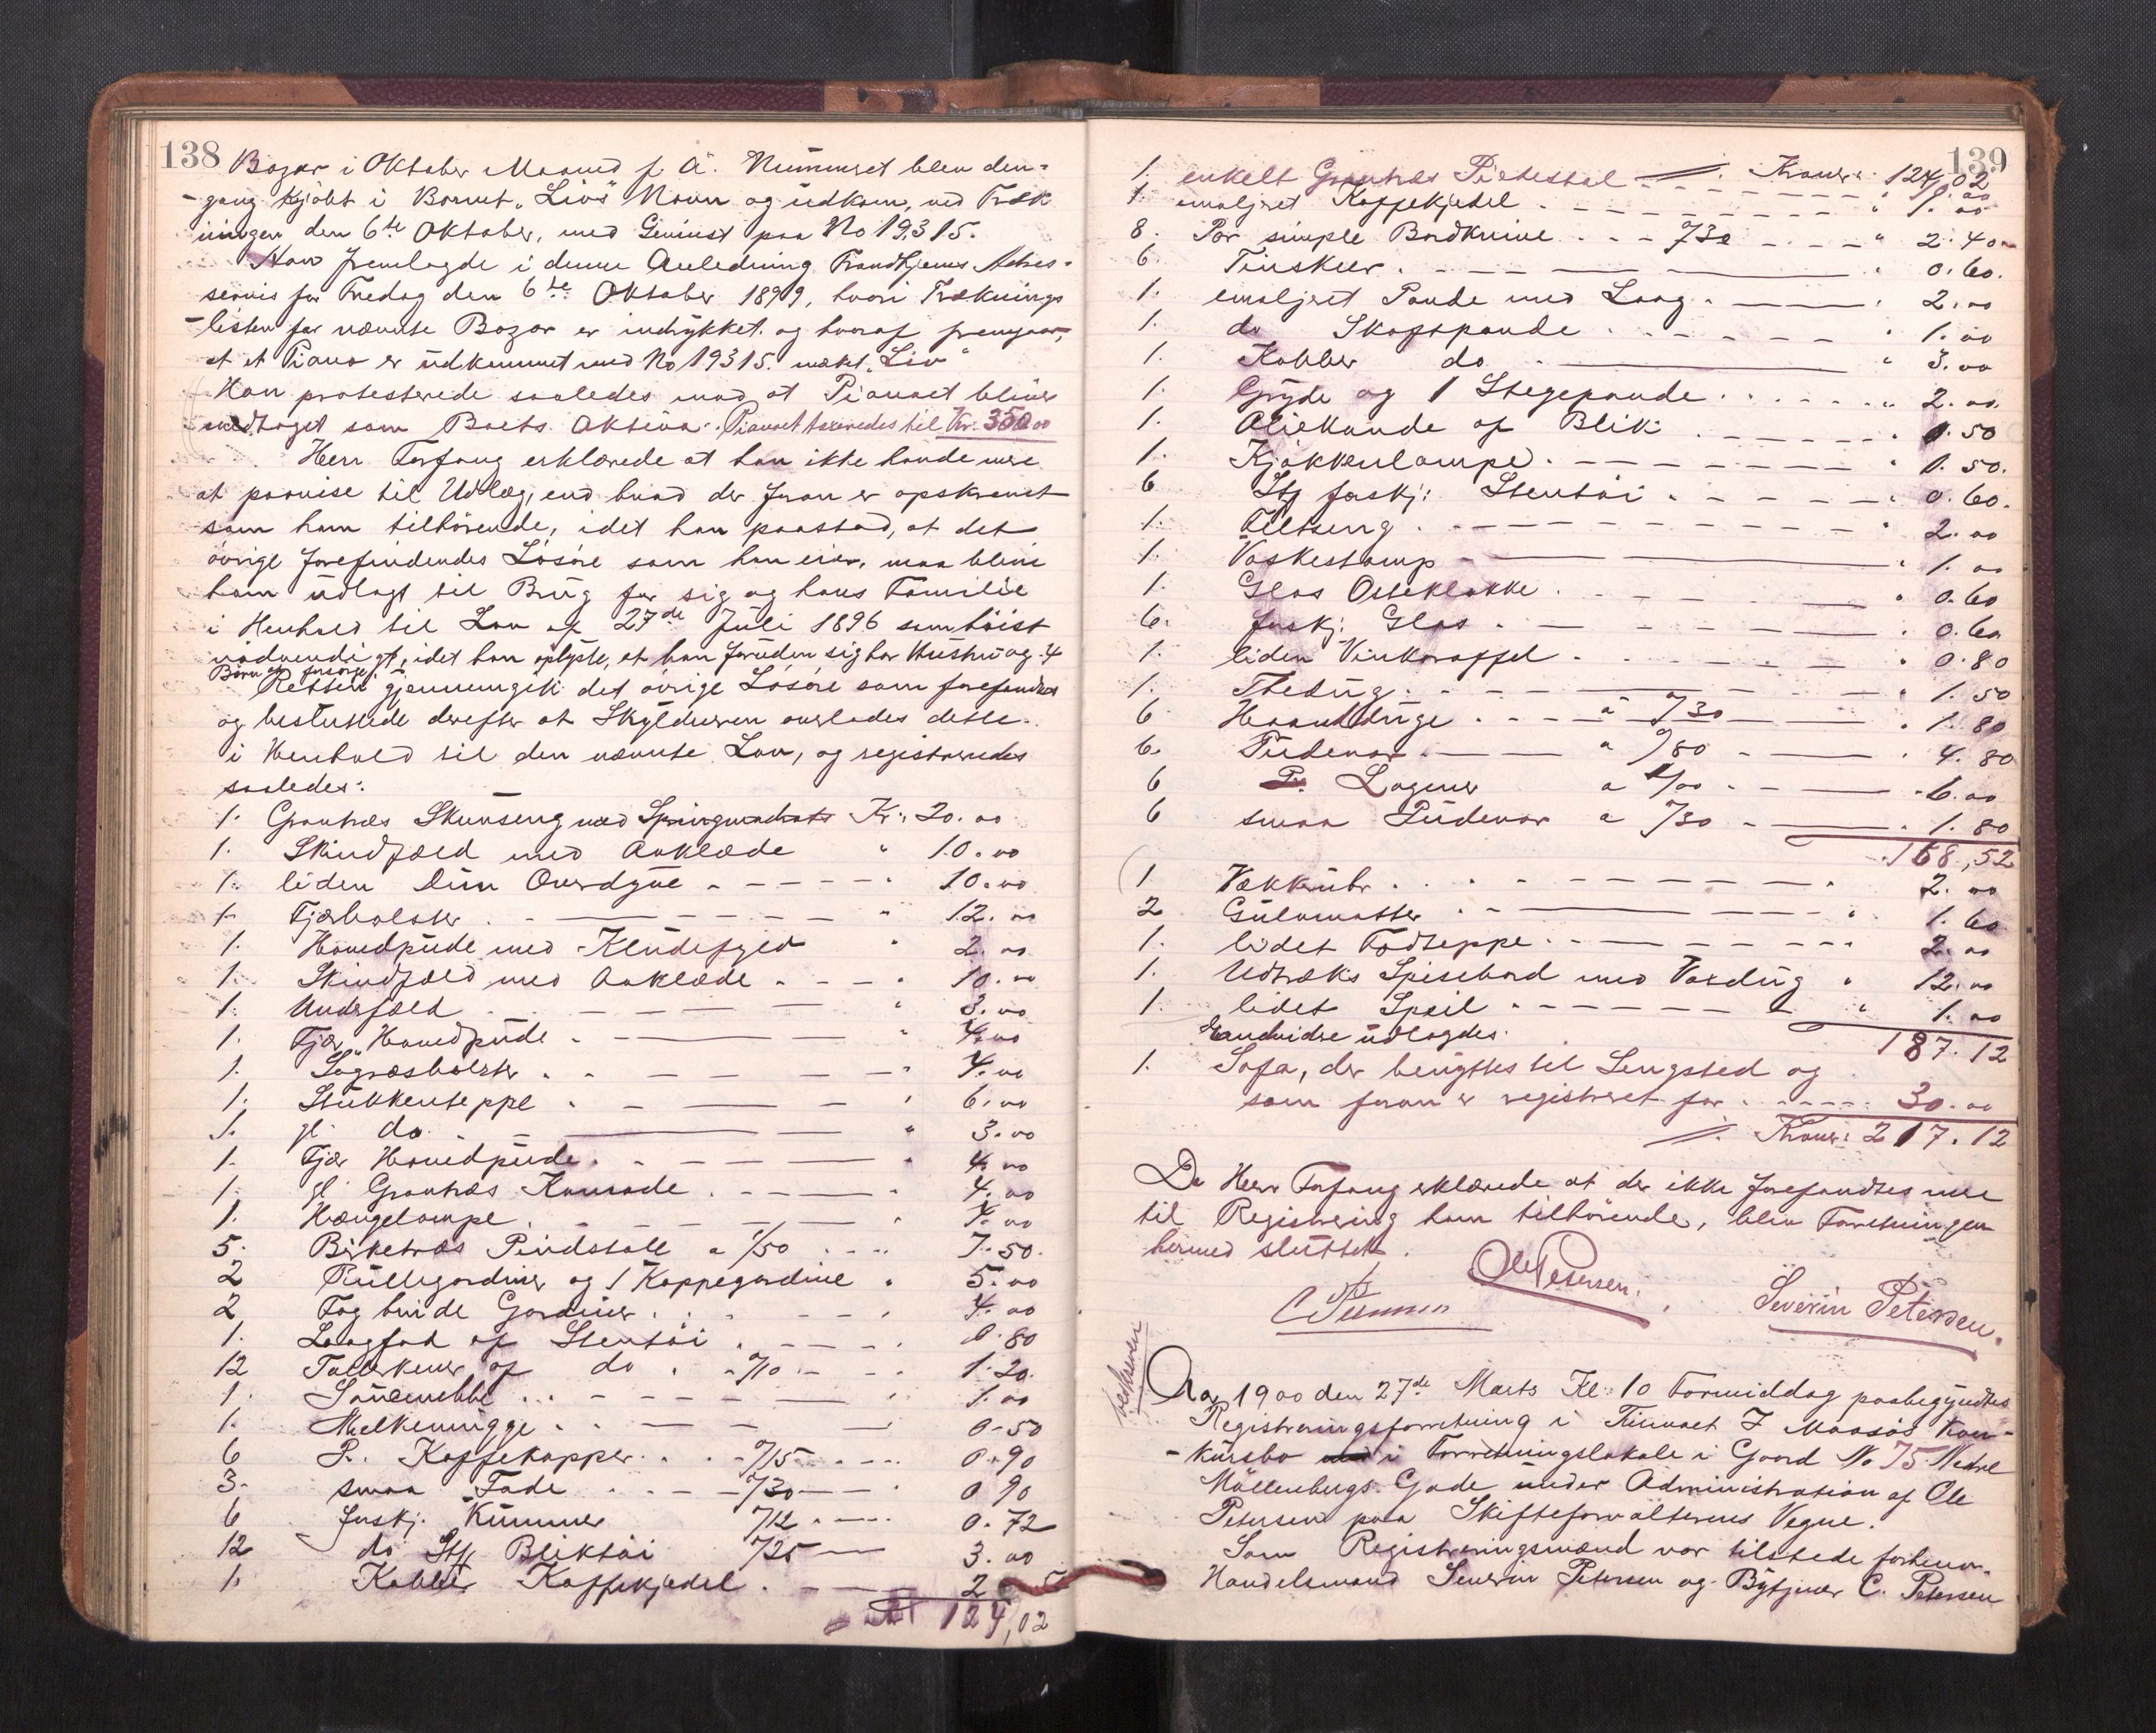 138
Bazar i Oktober Maaned f. A. Nummeret blev den-
-gang kjøbt i Barnet "Liv's" Navn og udkom, ved Træk
ningen den 6te Oktober, med Gevinst paa No 19315.
Han fremlagde i denne Anledning Trondhjems Adres-
seavis for Fredag den 6te Oktober 1899, hvori Træknings
-listen for nævnte Bazar er indrykket og hvoraf fremgaar,
at et Piano er udkommet med No 19315 mækt "Liv"
Han protesterede saaledes mod at Pianoet bliver
medtaget som Boets Aktiva. Pianoet taxeredes til Kr. 350.00
Herr Forfang erklærede at han ikke havde mere
at paavise til Udlæg, end hvad der foran er opskrevet
som ham tilhørende, idet han paastod, at det
øvrige forefindendes Løsøre som han eier, maa blive
ham udlagt til Brug for sig og hans Familie
i Henhold til Lov af 27de Juli 1896 som høist
nødvendigt, idet han oplyste, at han foruden sig har Hustru og 4
Børn at forsørge.
Retten gjennemgik det øvrige Løsøre som forefandtes
og besluttede derefter at Skyldneren overlades dette
i Henhold til den nævnte Lov, og registreredes
saaledes:
1. Grantræs Skuvseng med Springmadrats Kr: 20.00
1. Skindfæld med Aaklæde " 10.00
1. liden Dun Overdyne " 10.00
1. Fjærbolster " 12.00
1. Hovedpude med Kludefyld " 2.00
1. Skindfæld med Aaklæde " 10.00
1. Underfæld " 3.00
1. Fjær Hovedpude " 4.00
1. Søgræsbolster " 4.00
1. Stukkenteppe " 6.00
1. gl. do. " 3.00
1. Fjær Hovedpude " 4.00
1. gl Grantræs Komode " 4.00
1. Hængelampe " 4.00
5. Birketræs Pindstole a 1/50 " 7.50.
2 Rullegardiner og 1 Kappegardine " 5.00
2 Fag hvide Gardiner " 4.00
1. Laagfad af Stentøi " 0.80
12 Tallerkener af do a 0/10 " 1.20.
1. Saucenebbe " 1.00
1. Melkemugge " 0.50
6 P. Kaffekopper 0/15 0.90
3. smaa Fade 0/30 0.90
6 forskj. Kummer 0/12 0.72
12 do Stk Bliktøi 0/25 3.00
1. Kobber Kaffekjedel
124,02
139
1. enkelt Grantræs Pidestal Kroner: 124,02
1. emaljeret Kaffekjedel " 1.00
8. Par simple Bordknive 0/30 " 2.40
6. Tinskeer " 0.60.
1. emaljeret Pande med Laag " 2.00
1. do Skaftpande " 1.00
1. Kobber do " 3.00
1. Gryde og 1 Stegepande " 2.00
1. Oliekande af Blik " 0.50
1. Kjøkkenlampe " 0.50.
6 Stk forskj: Stentøi " 0.60.
1. Feltseng " 2.00
1. Vaskestamp " 1.00
1. Glas Osteklokke " 0.60
6. forskj: Glas " 0.60
1. liden Vinkaraffel " 0.80
1. Thedug " 1.50
6 Haandduge a 0/30 " 1.80
6. Pudevar a 0/80 " 4.80
6 Lagener a 1/00 " 6.00
6 smaa Pudevar a 0/30 " 1.80
168,52
1 Vækkeuhr " 2.00
2 Gulvmatter " 1.60
1. lidet Fodteppe 2.00
1. Udtræks Spisebord med Voxdug " 12.00
1. lidet Speil " 1.00
187.12
Endvidre udlagdes:
1. Sofa, der benyttes til Sengsted og
som foran er registreret for 30.00
Kroner: 217.12
Da Herr Forfang erklærede at der ikke forefandtes mere
til Registrering ham tilhørende, blev Forretningen
hermed sluttet.
Ole Petersen.
C Petersen
Severin Petersen.
beskreven
Aar 1900 den 27de Marts Kl: 10 Formiddag paabegyndtes
Registreringsforretning i Firmaet J Maasøs Kon-
-kursbo i Forretningslokale i Gaard No 75 Nedre
Møllenbergs Gade under Administration af Ole
Petersen paa Skifteforvalterens Vegne.
Som Registreringsmænd var tilstede forhenv.
Handelsmand Severin Petersen og Bytjener C. Petersen